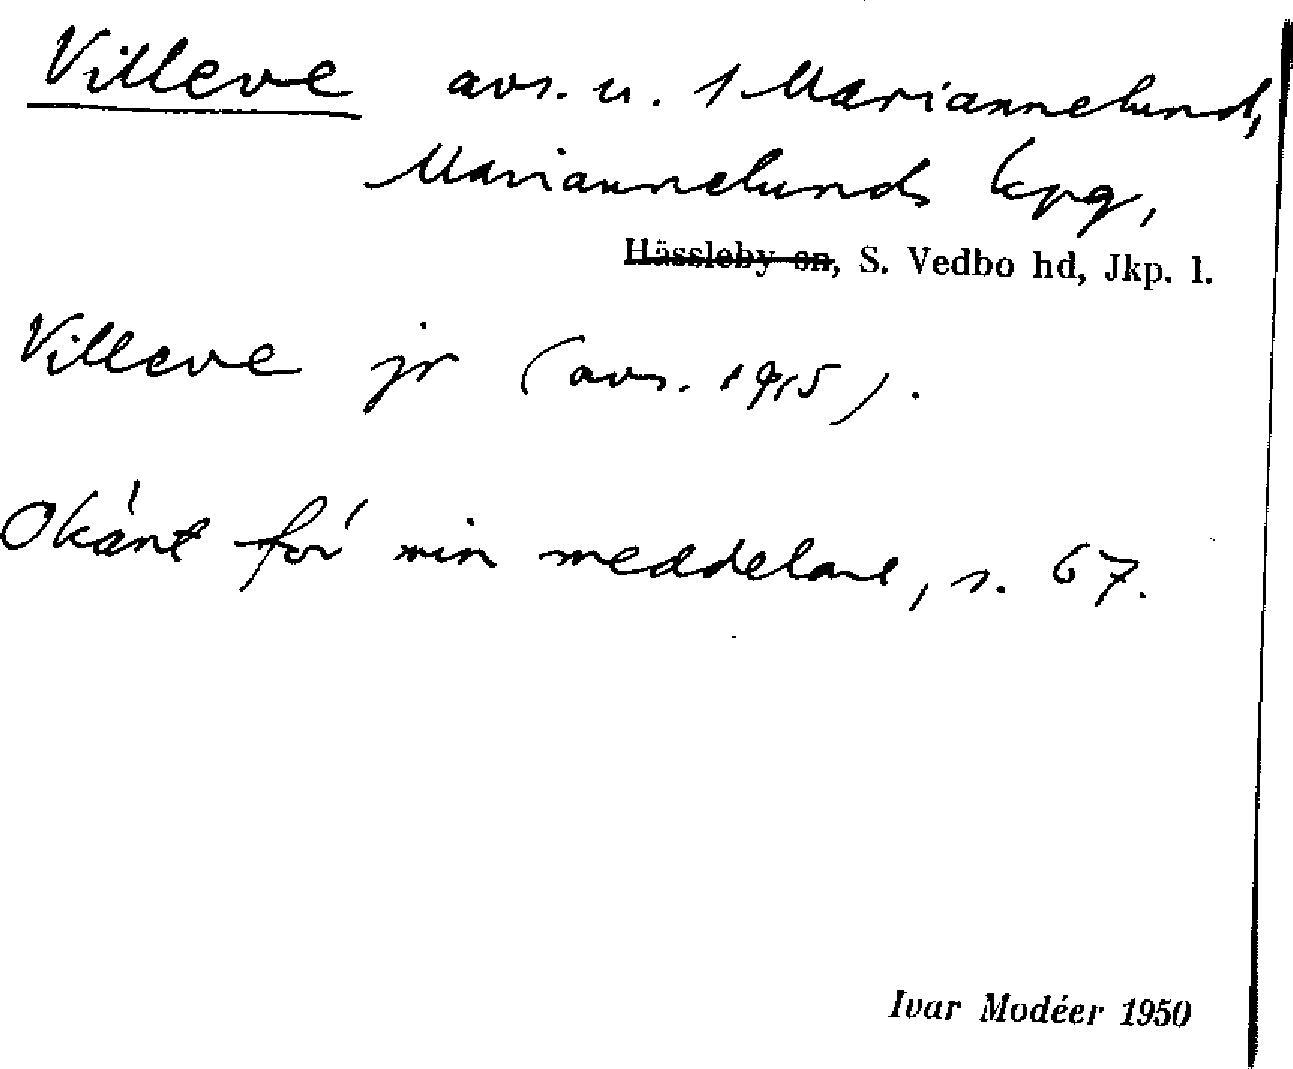 Villeve avs. u. 1 Mariannelund,
Mariannelunds kpg,
Hässleby sn, S. Vedbo hd, Jkp. l.
Villeve jr (avs. 1915).
Okänt för min meddelare, s. 67.
Ivar Modéer 1950